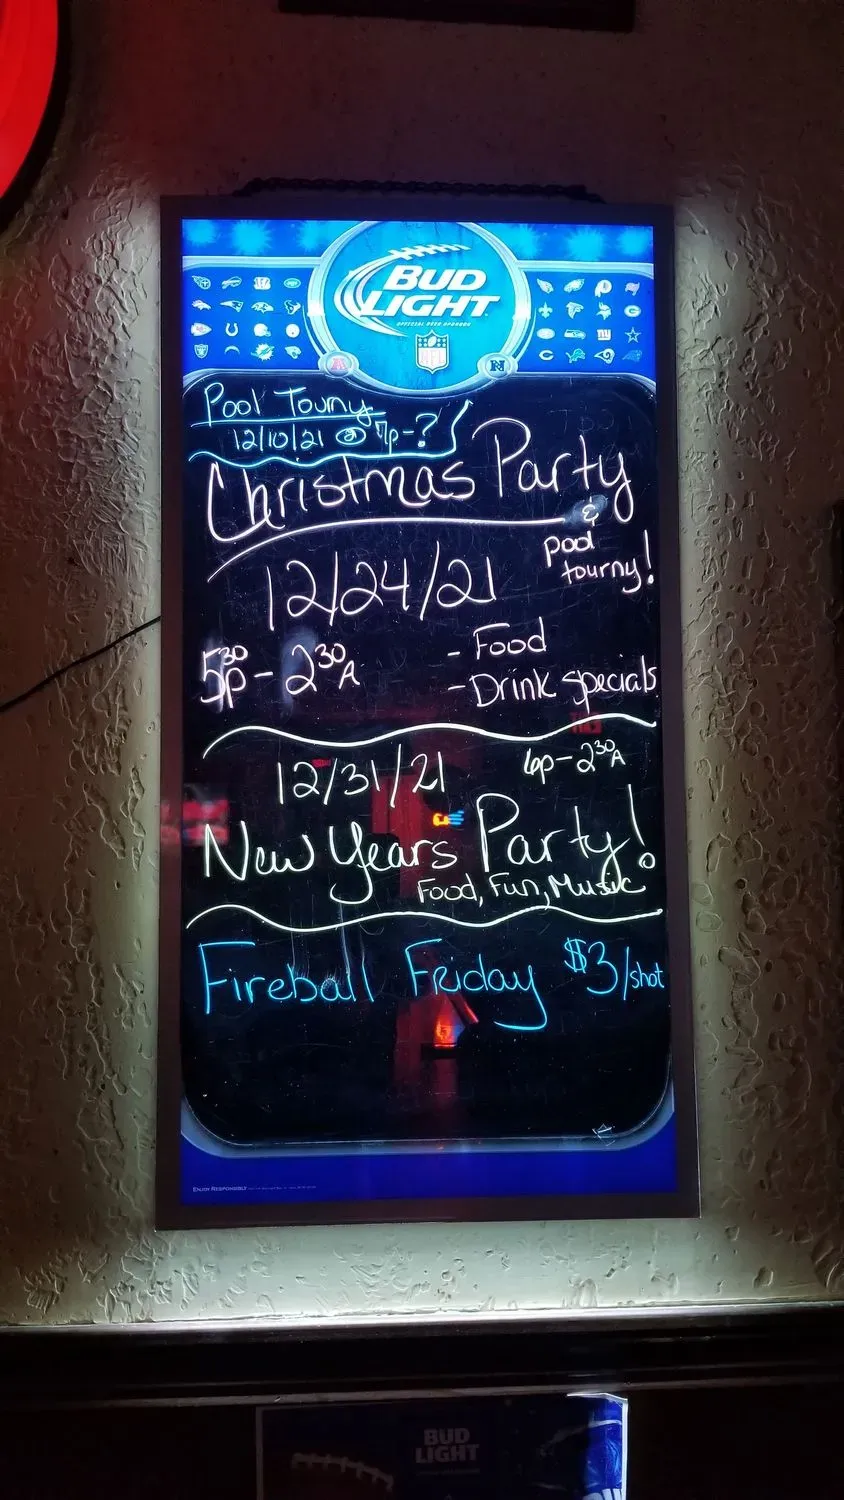 BUD
LIGHT
OFFICIAL BEER SPONSOR
NFL
A
N
Pool Tourny
12/10/21 @ 7p-?
Christmas Party
&
pool
tourny!
12/24/21
530p - 230A
- Food
- Drink Specials
12/31/21
6p-230A
New Years Party!
Food, Fun, Music
Fireball Friday $3/shot
ENJOY RESPONSIBLY
BUD
LIGHT